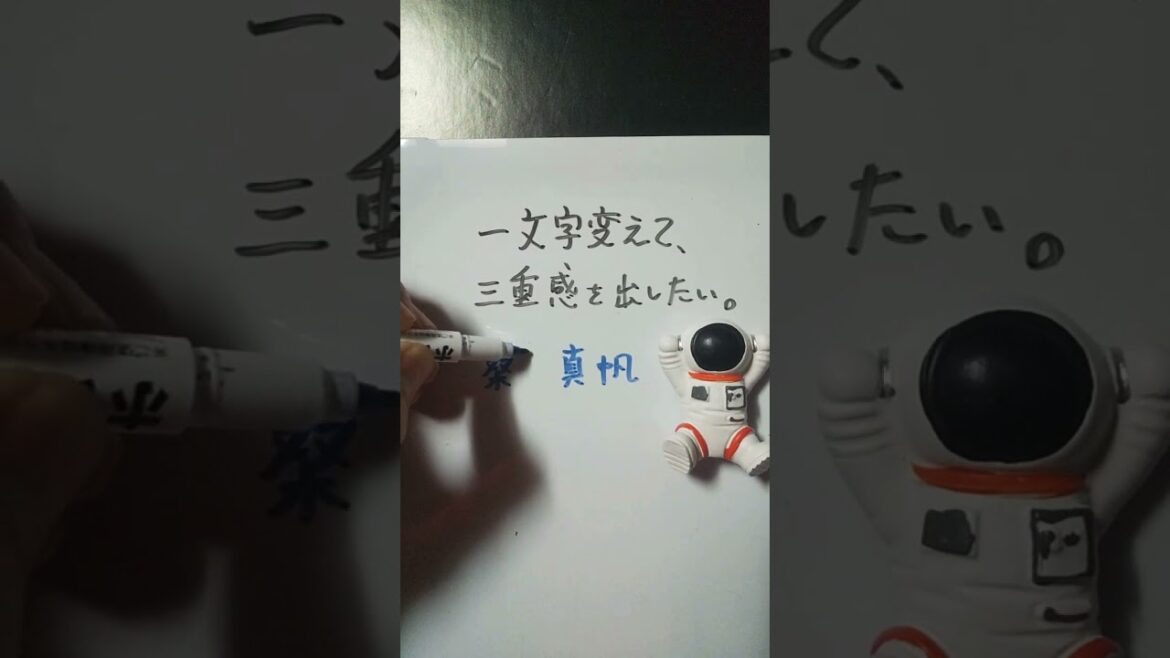 一文字変えて、
三重感を出したい。
桑 真帆